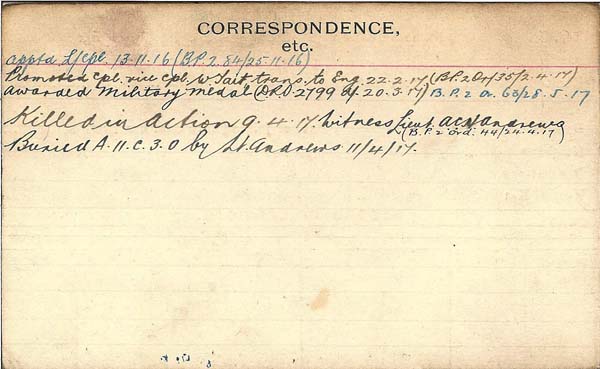 CORRESPONDENCE,
etc.
appt'd L/cpl. 13.11.16 (B.P.2.84/25.11.16)
Promoted Cpl. vice Cpl. W Tait trans. to Eng. 22.2.17 (B.P.2 Or/35/2.4.17)
Awarded Military Medal (D.R.O 2799 of 20.3.17) B.P. 2 Or. 63/28.5.17
Killed in Action 9.4.17. Witness Lieut. Andrews
(B.P. 2 Ord. 44/24.4.17)
Buried A.11.C.3.0 by Lt. Andrews 11/4/17.